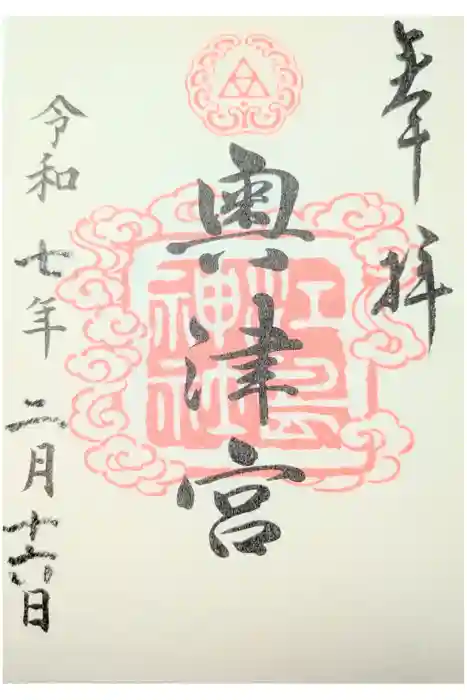 奉拝
江島
神社
奥津宮
令和七年二月十六日